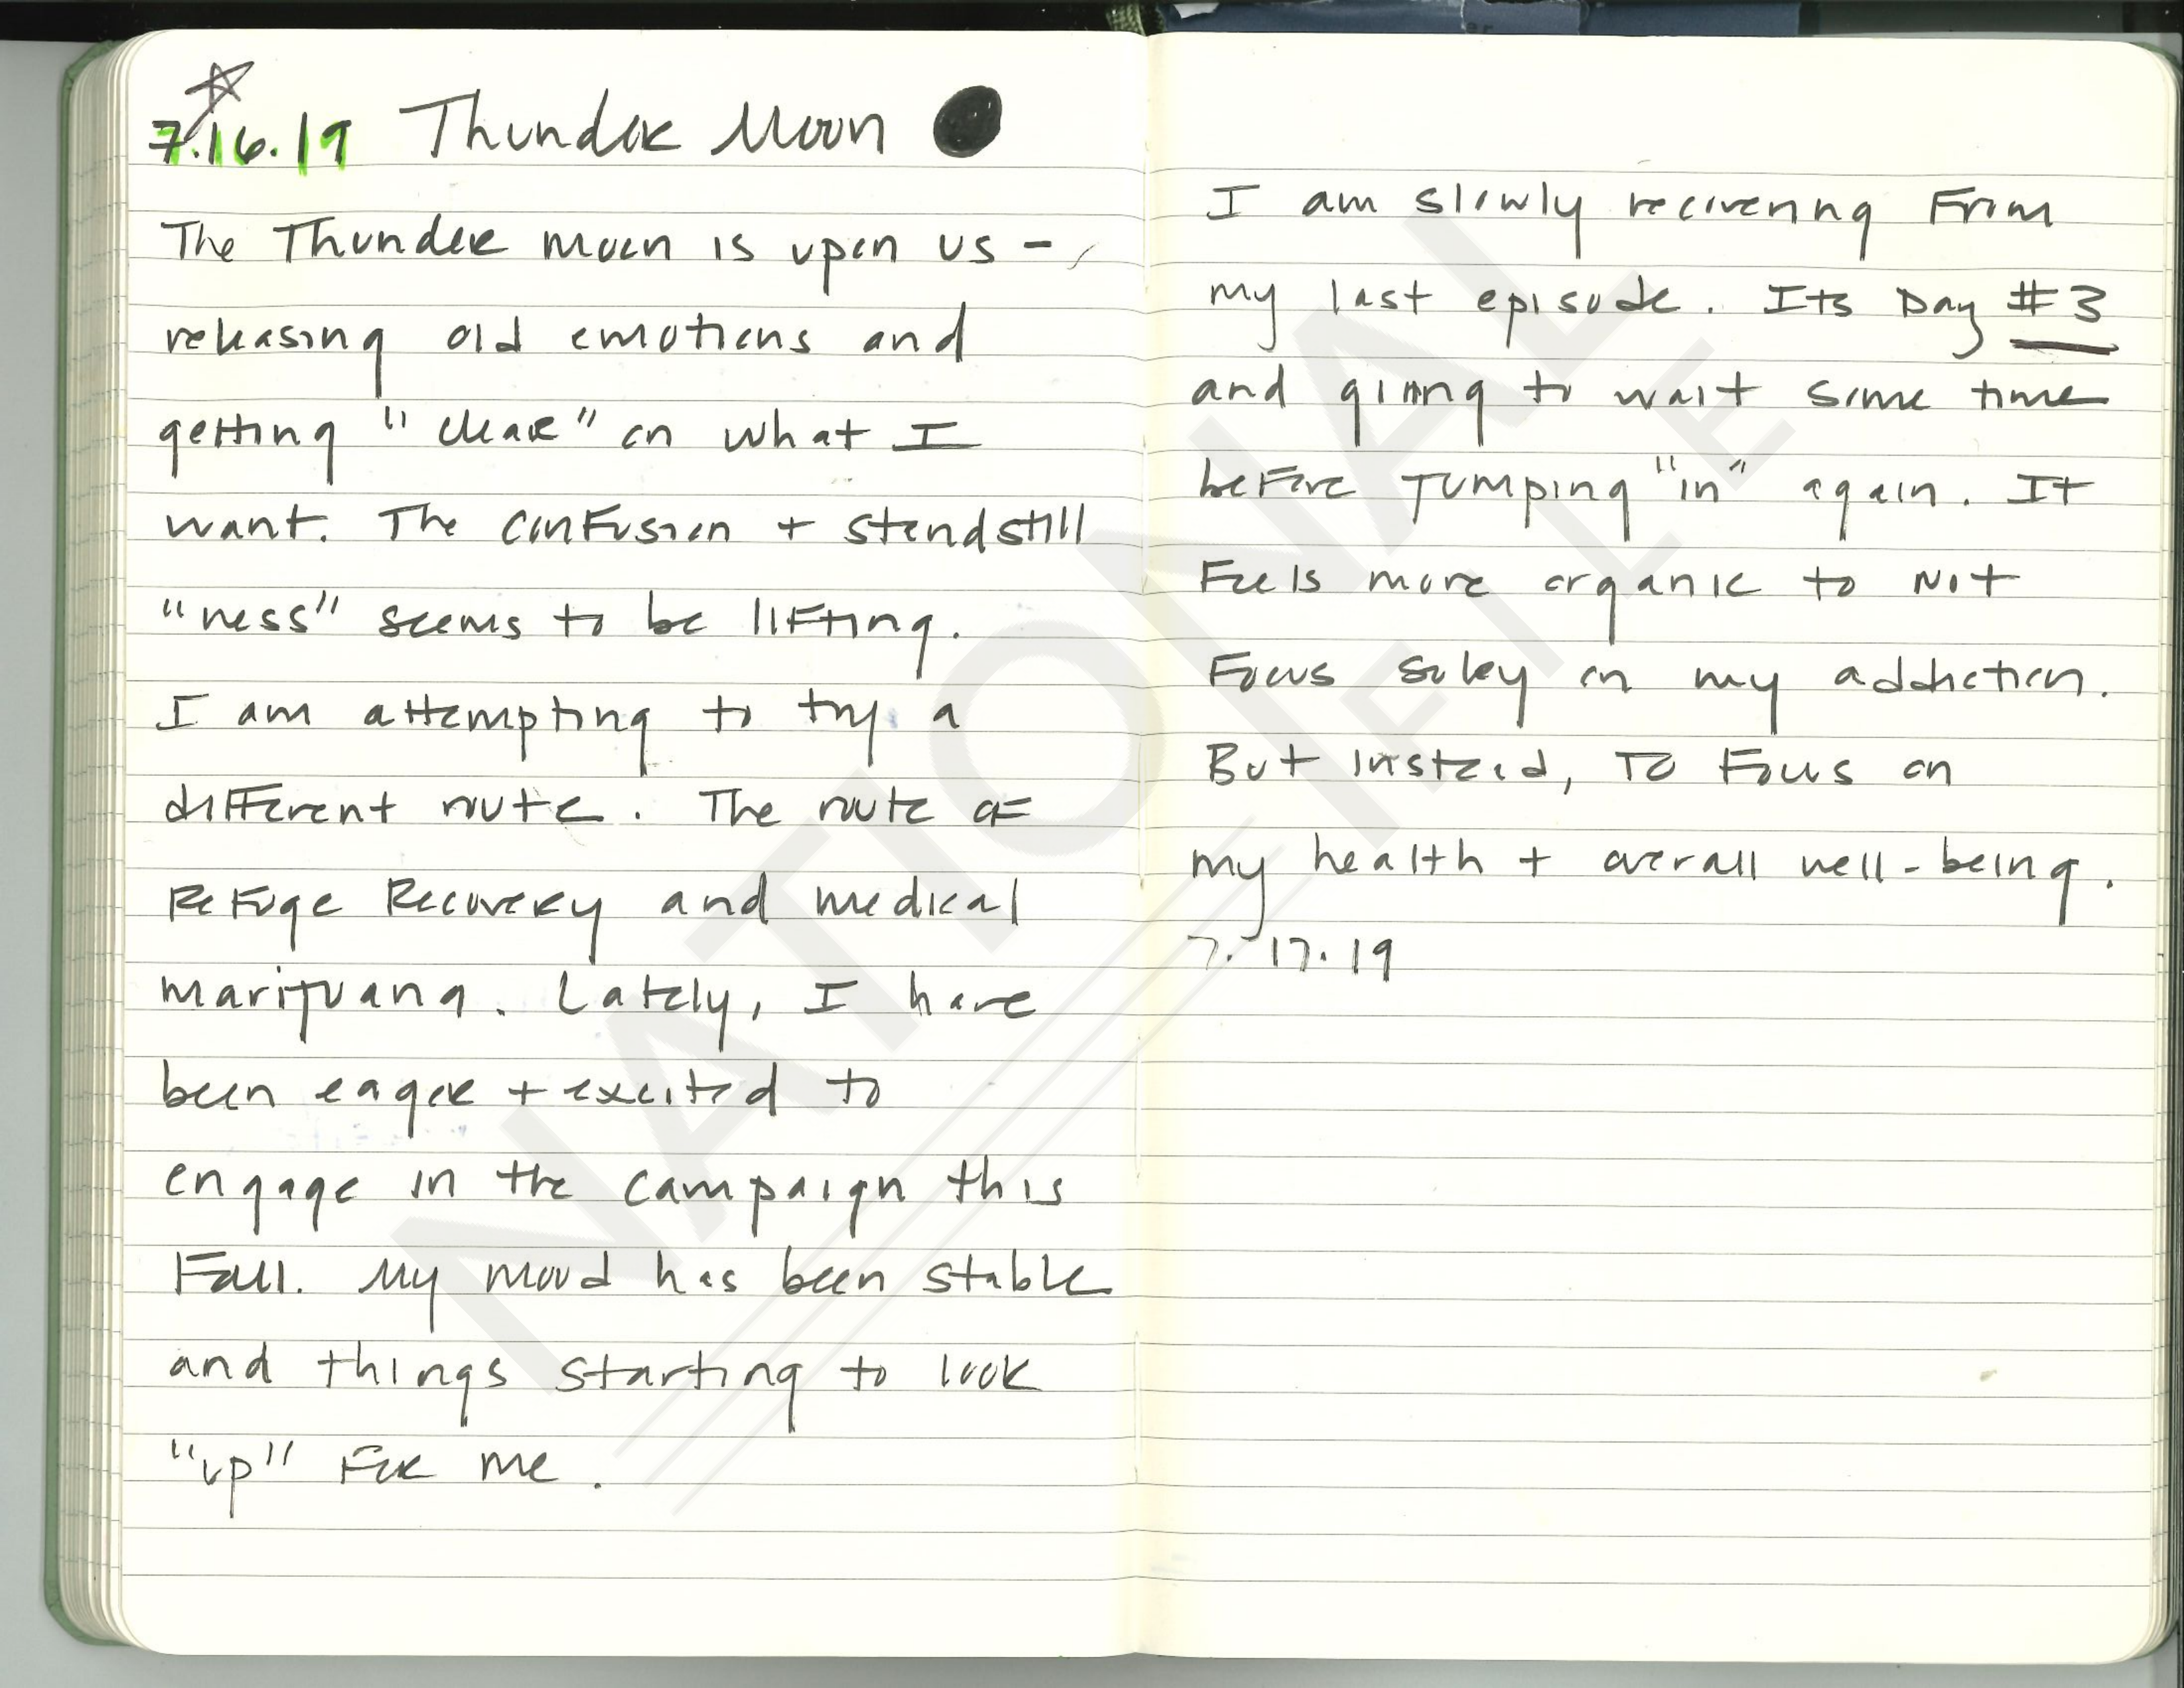 7.16.19 Thunder Moon
The Thunder moon is upon us -
releasing old emotions and
getting "clear" on what I
want. The confusion + standstill
"ness" seems to be lifting.
I am attempting to try a
different route. The route of
Refuge Recovery and medical
marijuana. Lately, I have
been eager + excited to
engage in the campaign this
Fall. My mood has been stable
and things starting to look
"up" for me.
I am slowly recovering from
my last episode. Its Day #3
and going to wait some time
before jumping "in" again. It
Feels more organic to Not
Focus soley on my addiction.
But instead, To Focus on
my health + overall well-being.
7.17.19
NATIONAL
FILE